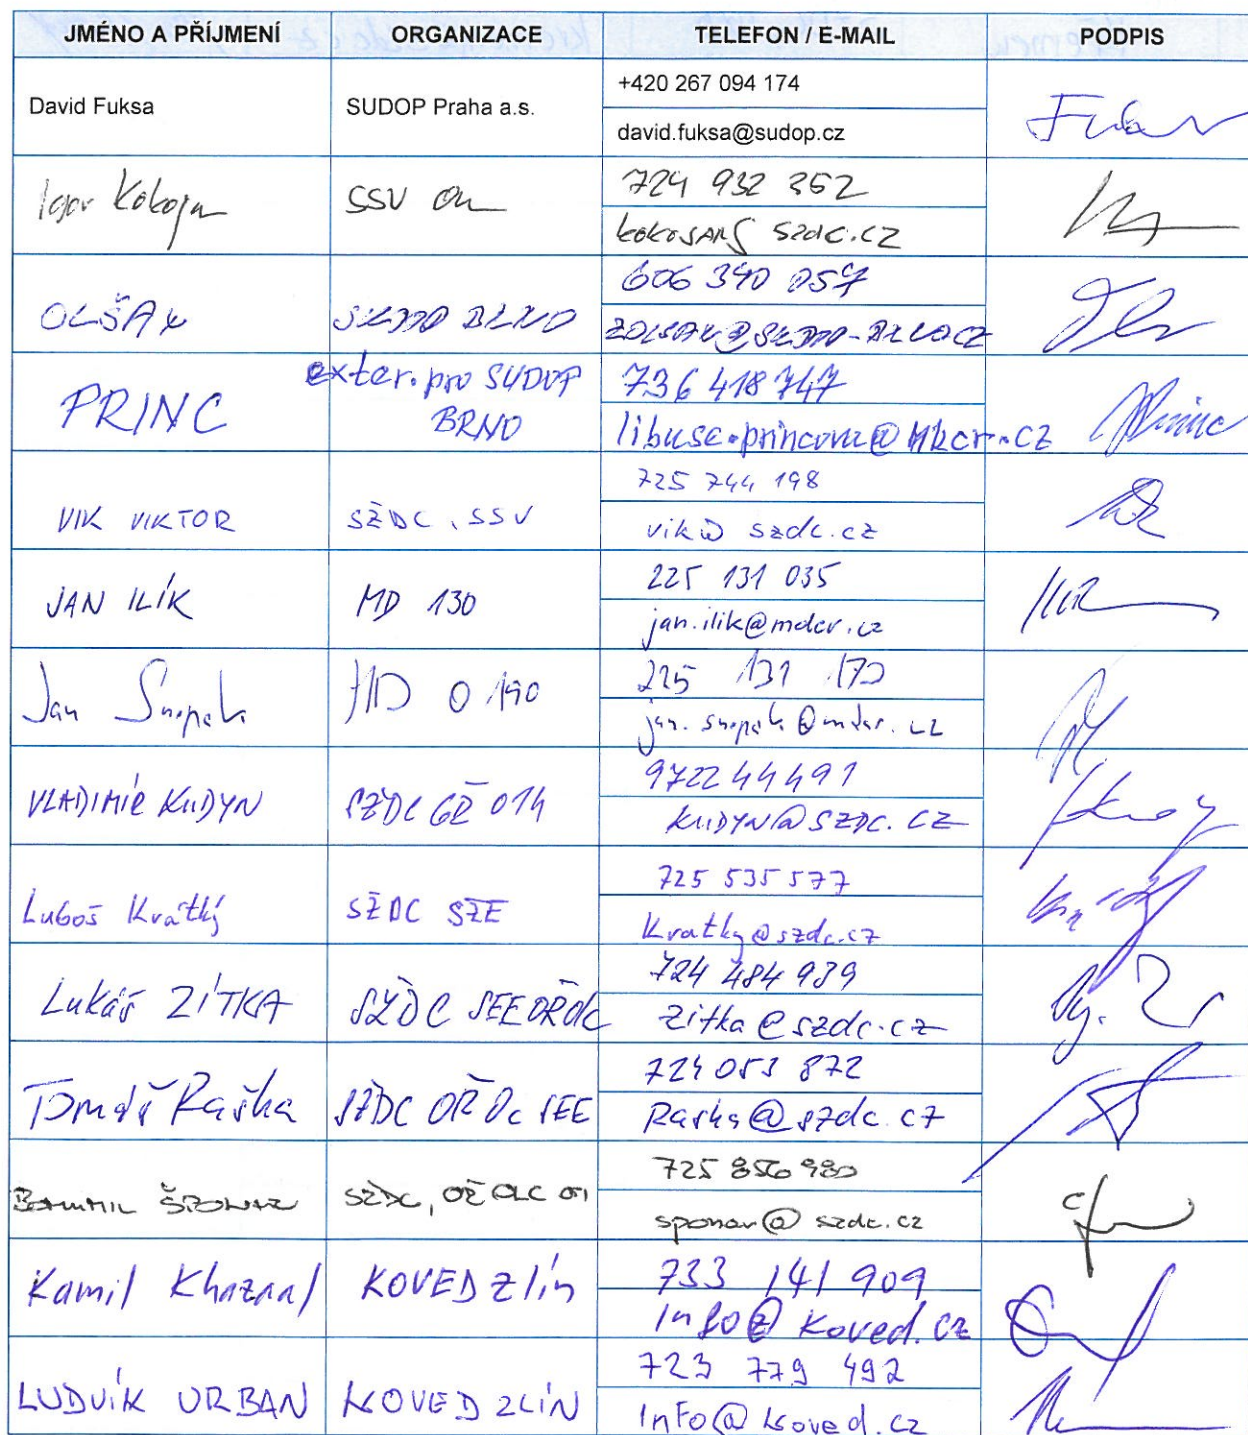 JMÉNO A PŘÍJMENÍ ORGANIZACE TELEFON / E-MAIL PODPIS
David Fuksa SUDOP Praha a.s. +420 267 094 174
david.fuksa@sudop.cz
Igor SSV 724 932 352
szdc.cz
OLŠAK SUDOP BRNO 606 340 057
PRINC exter. pro SUDOP 736 418 747
BRNO libuse.princova@mkcr.cz
VIK VIKTOR SŽDC, SSV 725 744 198
vik@szdc.cz
JAN ILÍK MD 130 225 131 035
jan.ilik@mdcr.cz
Jan Snopek MD O 190 225 131 170
jan.snopek@mdcr.cz
VLADIMÍR KUDYN SŽDC GŘ O14 972244491
KUDYN@SZDC.CZ
Luboš Krátký SŽDC SŽE 725 535 577
Kratky@szdc.cz
Lukáš ZÍTKA SŽDC SEE OŘ Olc 724 484 939
Zitka@szdc.cz
Tomáš Raška SŽDC OŘ Olc SEE 724 053 872
Raska@szdc.cz
BOHUMIL ŠPONAR SŽDC, OŘ OLC 725 856 980
sponar@szdc.cz
Kamil Khazaal KOVED Zlín 733 141 909
Info@koved.cz
LUDVÍK URBAN KOVED ZLÍN 723 779 492
Info@koved.cz